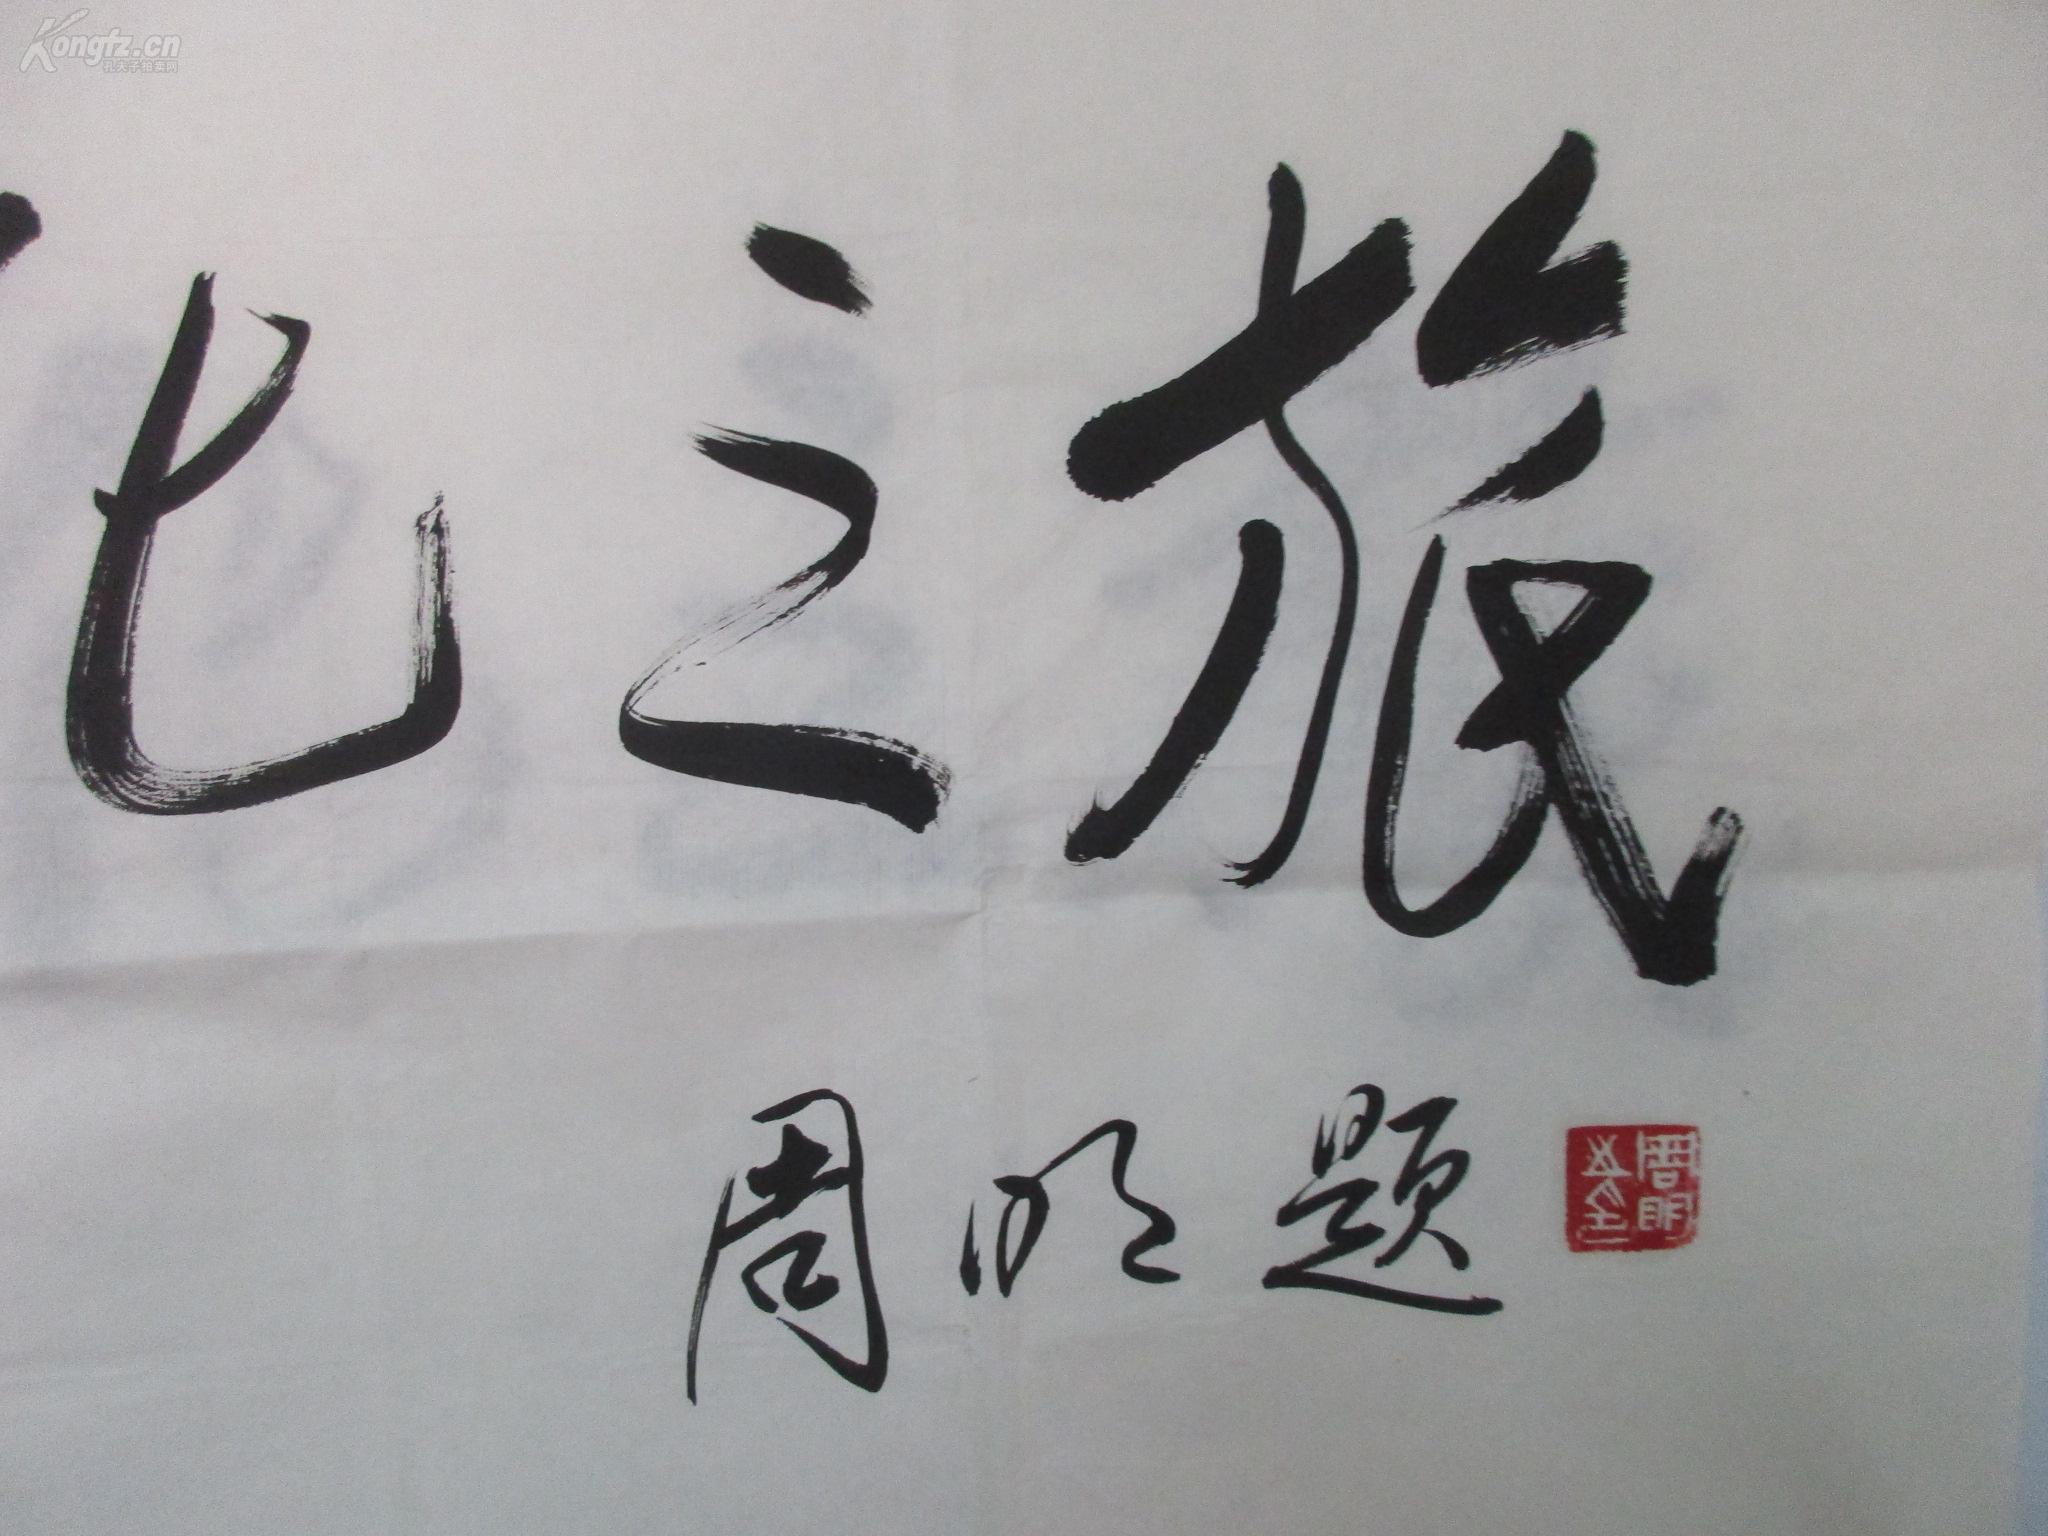 Kongfz.cn
孔夫子拍卖网
化之旅
周明题
周明之玺